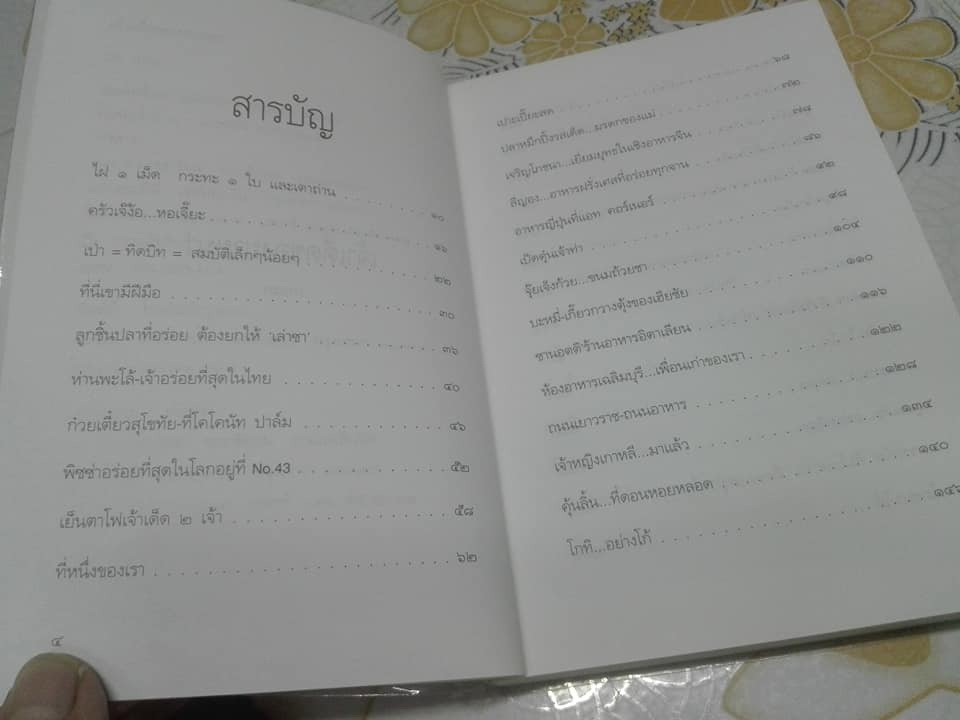 สารบัญ
ไฝ ๑ เม็ด กระทะ ๑ ใบ และเตาถ่าน ๑๐
ครัวเจ๊ง้อ...หอเจี๊ยะ ๑๖
เป่า = ทิดบิท = สมบัติเล็กๆน้อยๆ ๒๒
ที่นี่เขามีฝีมือ ๓๐
ลูกชิ้นปลาที่อร่อย ต้องยกให้ 'เล่าซา' ๓๖
ห่านพะโล้-เจ้าอร่อยที่สุดในไทย ๔๐
ก๋วยเตี๋ยวสุโขทัย-ที่โคโคนัท ปาล์ม ๔๖
พิซซ่าอร่อยที่สุดในโลกอยู่ที่ No.43 ๕๒
เย็นตาโฟเจ้าเด็ด ๒ เจ้า ๕๘
ที่หนึ่งของเรา ๖๒
๔
เปาะเปี๊ยะสด ๖๘
ปลาหมึกปิ้งรสเด็ด...มรดกของแม่ ๗๒
เจริญโภชนา...เยี่ยมยุทธในเชิงอาหารจีน ๗๘
ลียอง...อาหารฝรั่งเศสที่อร่อยทุกจาน ๘๖
อาหารญี่ปุ่นที่แอท คอร์เนอร์ ๙๒
เป็ดตุ๋นเจ้าท่า ๙๘
จุ๊ยเจิงก้วย...ขนมถ้วยชา ๑๐๔
บะหมี่-เกี๊ยวกวางตุ้งของเฮียชัย ๑๑๐
ซานอตติ ร้านอาหารอิตาเลียน ๑๑๖
ห้องอาหารเฉลิมบุรี...เพื่อนเก่าของเรา ๑๒๒
ถนนเยาวราช-ถนนอาหาร ๑๒๘
เจ้าหญิงเกาหลี...มาแล้ว ๑๓๔
คุ้นลิ้น...ที่ดอนหอยหลอด ๑๔๐
โภทิ...อย่างโก้ ๑๔๖